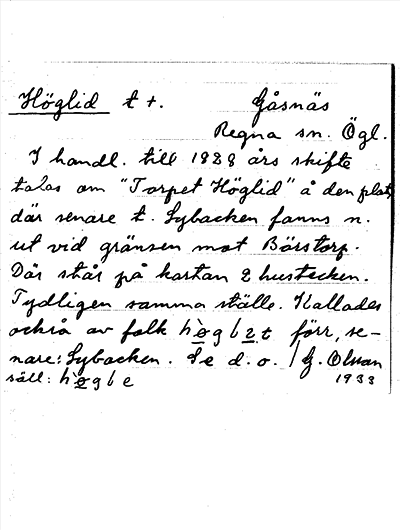 Höglid t +. Gåsnäs
Regna sn. Ögl.
I handl. till 1828 års skifte
talas om "Torpet Höglid" å den plats,
där senare t. Sybacken fanns n.
ut vid gränsen mot Börstorp.
Där står på kartan 2 hustecken.
Tydligen samma ställe. Kallades
också av folk förr, se-
nare: Sybacken. Se d. o. / G. Olsson
säll: 1933